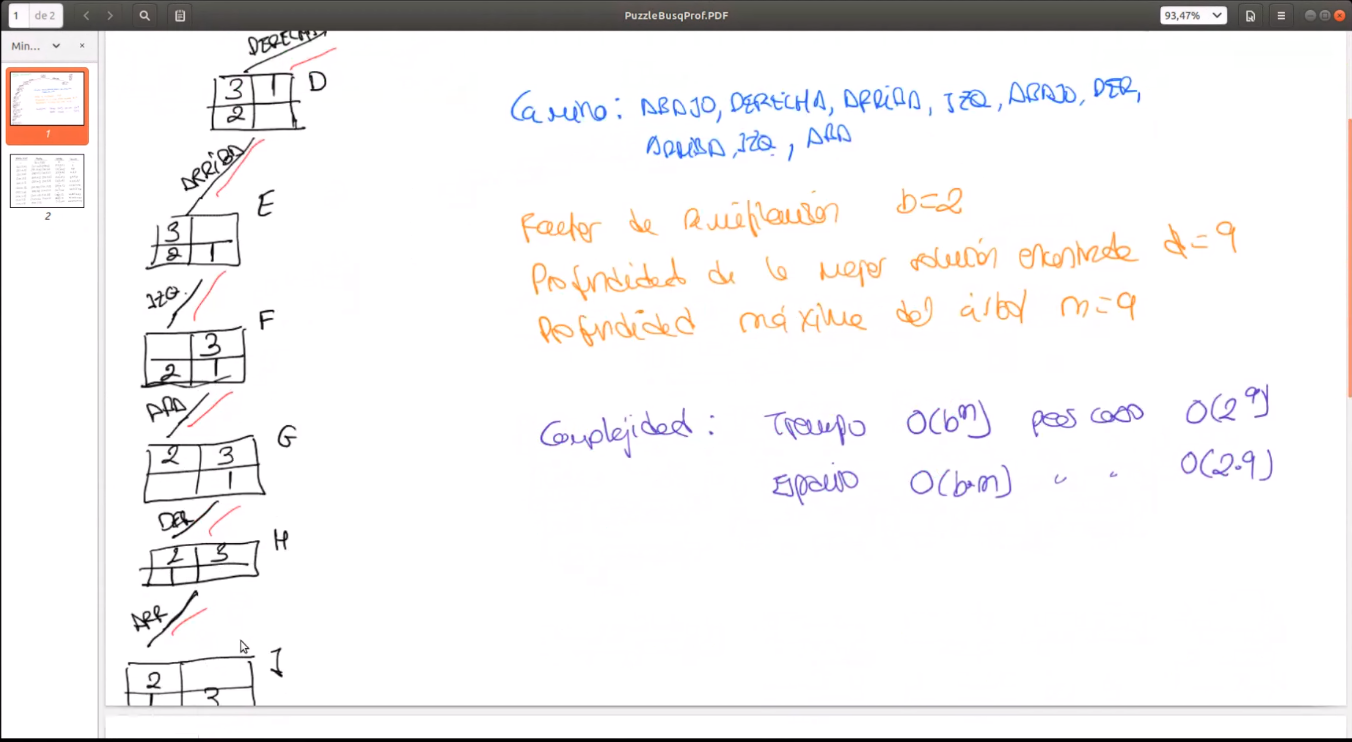 1 de 2
PuzzleBusqProf.PDF
93,47%
Min...
1
2
DERECHA
3 1 D
2
ARRIBA
E
3
2 1
IZQ.
F
3
2 1
ABA
G
2 3
1
DER
H
2 3
1
ARR
I
2
1 3
Camino: ABAJO, DERECHA, ARRIBA, IZQ, ABAJO, DER,
ARRIBA, IZQ., ABA
Factor de ramificación b=2
Profundidad de la mejor solución encontrada d=9
Profundidad máxima del árbol m=9
Complejidad: Tiempo O(b^m) peor caso O(2^9)
Espacio O(b·m) " " O(2·9)